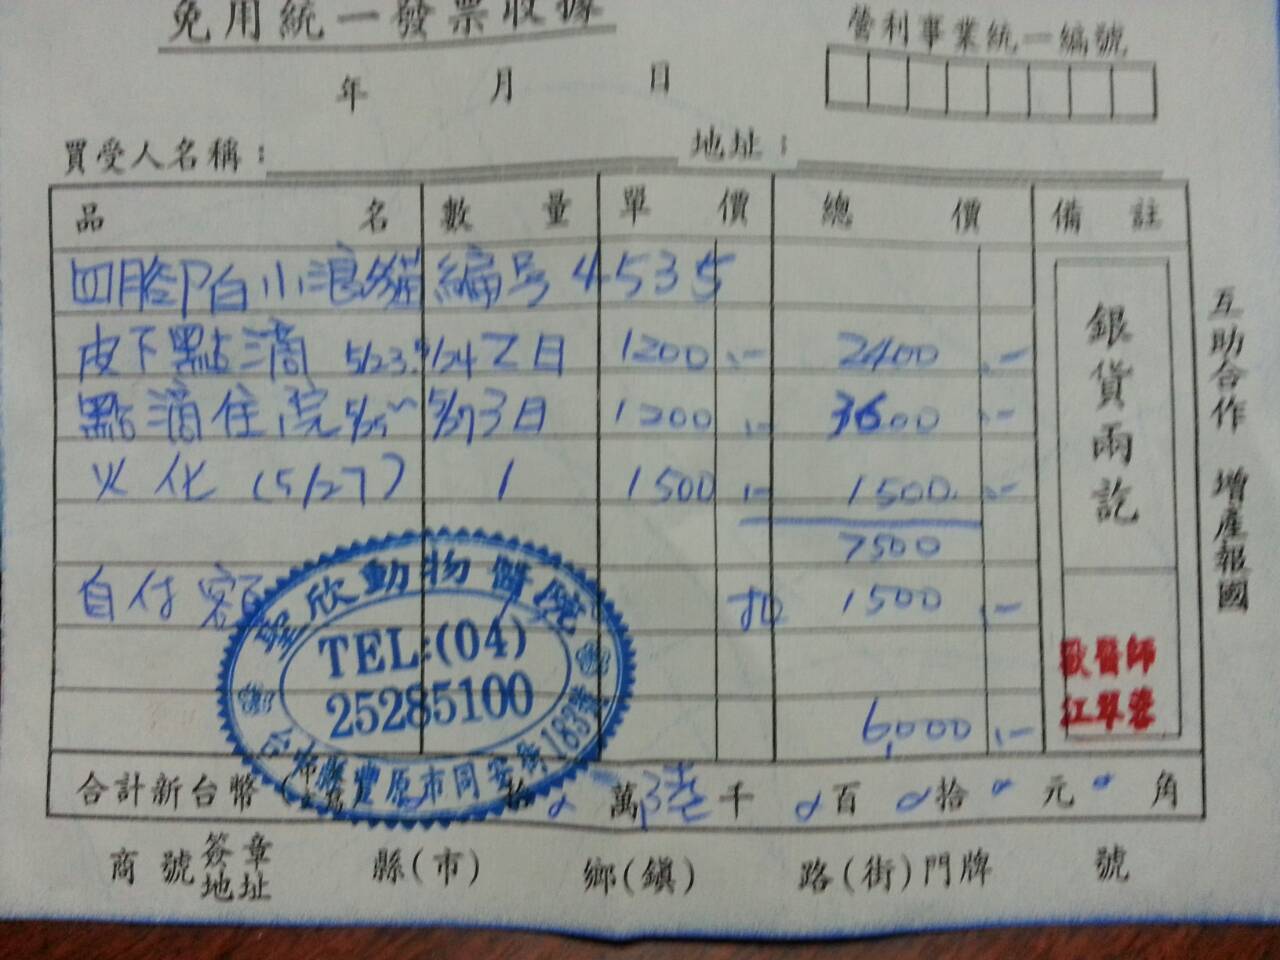 免用統一發票收據
營利事業統一編號
年 月 日
買受人名稱： 地址：
品名 數量 單價 總價 備註
四腳白小浪貓 編号 4535
皮下點滴 5/23.5/24 乙日 1200 .- 2400 .-
點滴住院 5/25~5/27 3日 1200 .- 3600 .-
火化 (5/27) 1 1500 .- 1500 .-
7500
自付額 扣 1500 .-
6,000 .-
銀貨兩訖
互助合作 增產報國
聖欣動物醫院
TEL:(04)
25285100
台中縣豐原市同安街183號
歐醫師
合計新台幣 拾 萬 陸千 百 拾 元 角
商號 簽章 地址 縣(市) 鄉(鎮) 路(街)門牌 號